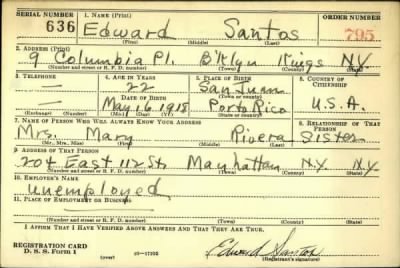 SERIAL NUMBER 1. NAME (Print) ORDER NUMBER
636 Edward Santos 795
(First) (Middle) (Last)
2. ADDRESS (Print)
9 Columbia Pl. B'klyn Kings N.Y.
(Number and street or R. F. D. number) (Town) (County) (State)
3. TELEPHONE 4. AGE IN YEARS 5. PLACE OF BIRTH 6. COUNTRY OF CITIZENSHIP
— 22 San Juan
DATE OF BIRTH (Town or county)
— May 16 1918 Porto Rico U.S.A.
(Exchange) (Number) (Mo.) (Day) (Yr.) (State or country)
7. NAME OF PERSON WHO WILL ALWAYS KNOW YOUR ADDRESS 8. RELATIONSHIP OF THAT PERSON
Mrs. Mary Rivera Sister
(Mr., Mrs., Miss) (First) (Middle) (Last)
9. ADDRESS OF THAT PERSON
204 East 112 St. Manhattan N.Y. N.Y.
(Number and street or R. F. D. number) (Town) (County) (State)
10. EMPLOYER'S NAME
Unemployed
11. PLACE OF EMPLOYMENT OR BUSINESS
(Number and street or R. F. D. number) (Town) (County) (State)
I AFFIRM THAT I HAVE VERIFIED ABOVE ANSWERS AND THAT THEY ARE TRUE.
REGISTRATION CARD
D. S. S. Form 1
Edward Santos
(Registrant's signature)